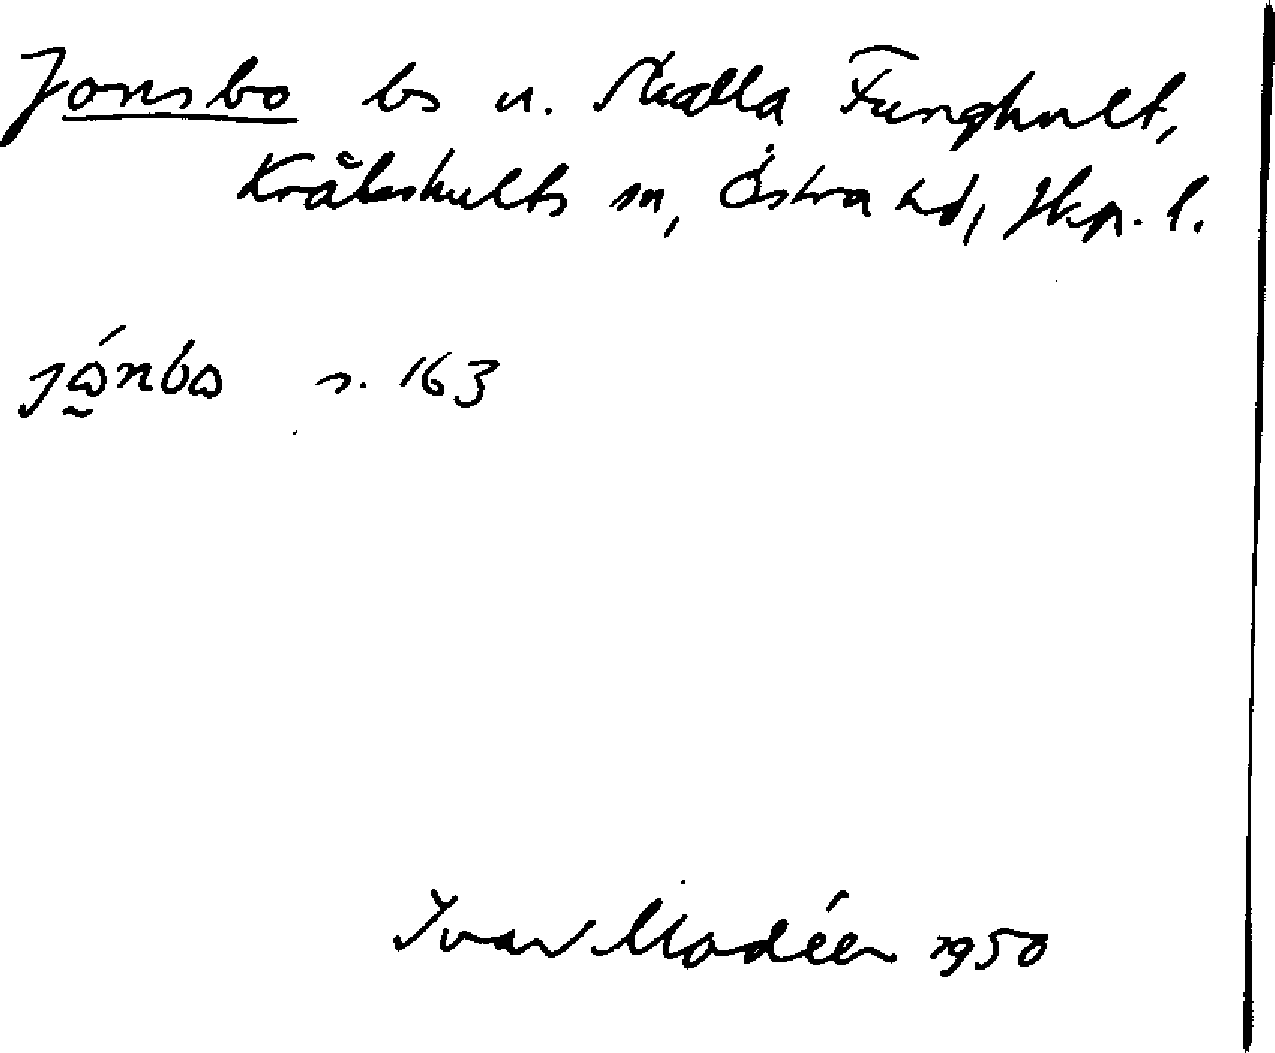 Jonsbo bs u. Skälla Funghult,
Kråkshults sn, Östra hd, Jkp. l.
jó̰nbo s. 163
Ivar Modéer 1950